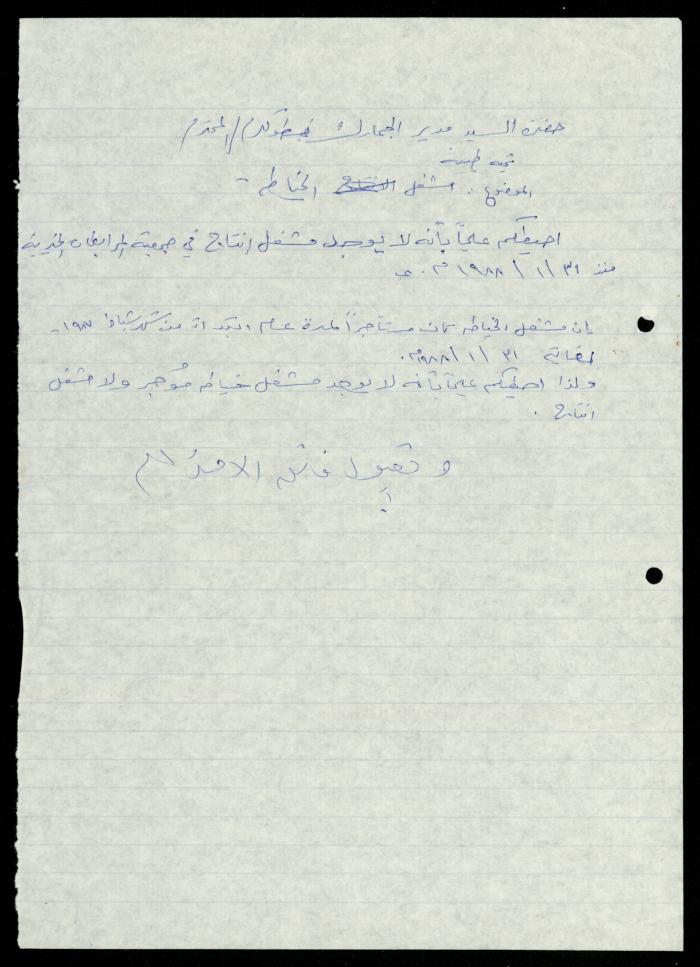 حضرة السيد مدير الجمارك في طولكرم / المحترم
تحية طيبة
الموضوع : مشغل الانتاج الخياطة -
احيطكم علماً بأنه لا يوجد مشغل انتاج في جمعية المرابطات الخيرية
منذ ٣١ / ١ / ١٩٨٨ م.
ان مشغل الخياطه كان مستأجراً لمدة عام ابتداءً من شهر شباط ١٩٨٧ -
لغاية ٣١ / ١ / ١٩٨٨م.
ولذا احيطكم علماً بأنه لا يوجد مشغل خياطه مُؤجر ولا مشغل
انتاج .
و تقبلوا فائق الاحترام